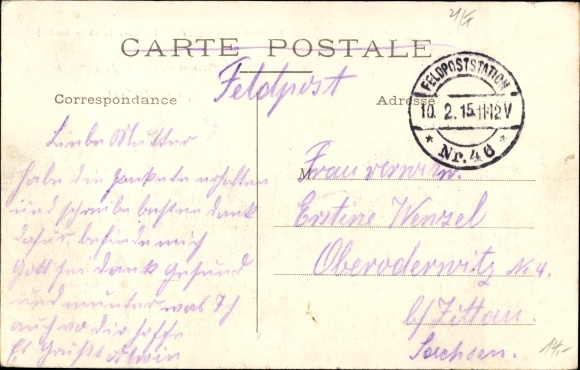 CARTE POSTALE
Feldpost
Correspondance
Adresse
FELDPOSTSTATION
10. 2. 15. 11-12 V
* Nr. 46 *
Liebe Mutter
habe die Pakete erhalten
und schreibe besten Dank
dafür befinde mich
Gott sei dank Gesund
und munter was Ich
auch von dir hoffe
Es Grüßt Alwin
M
Frau verw.
Ernstine Wenzel
Oberoderwitz No 4.
b/Zittau.
Sachsen.
14.-